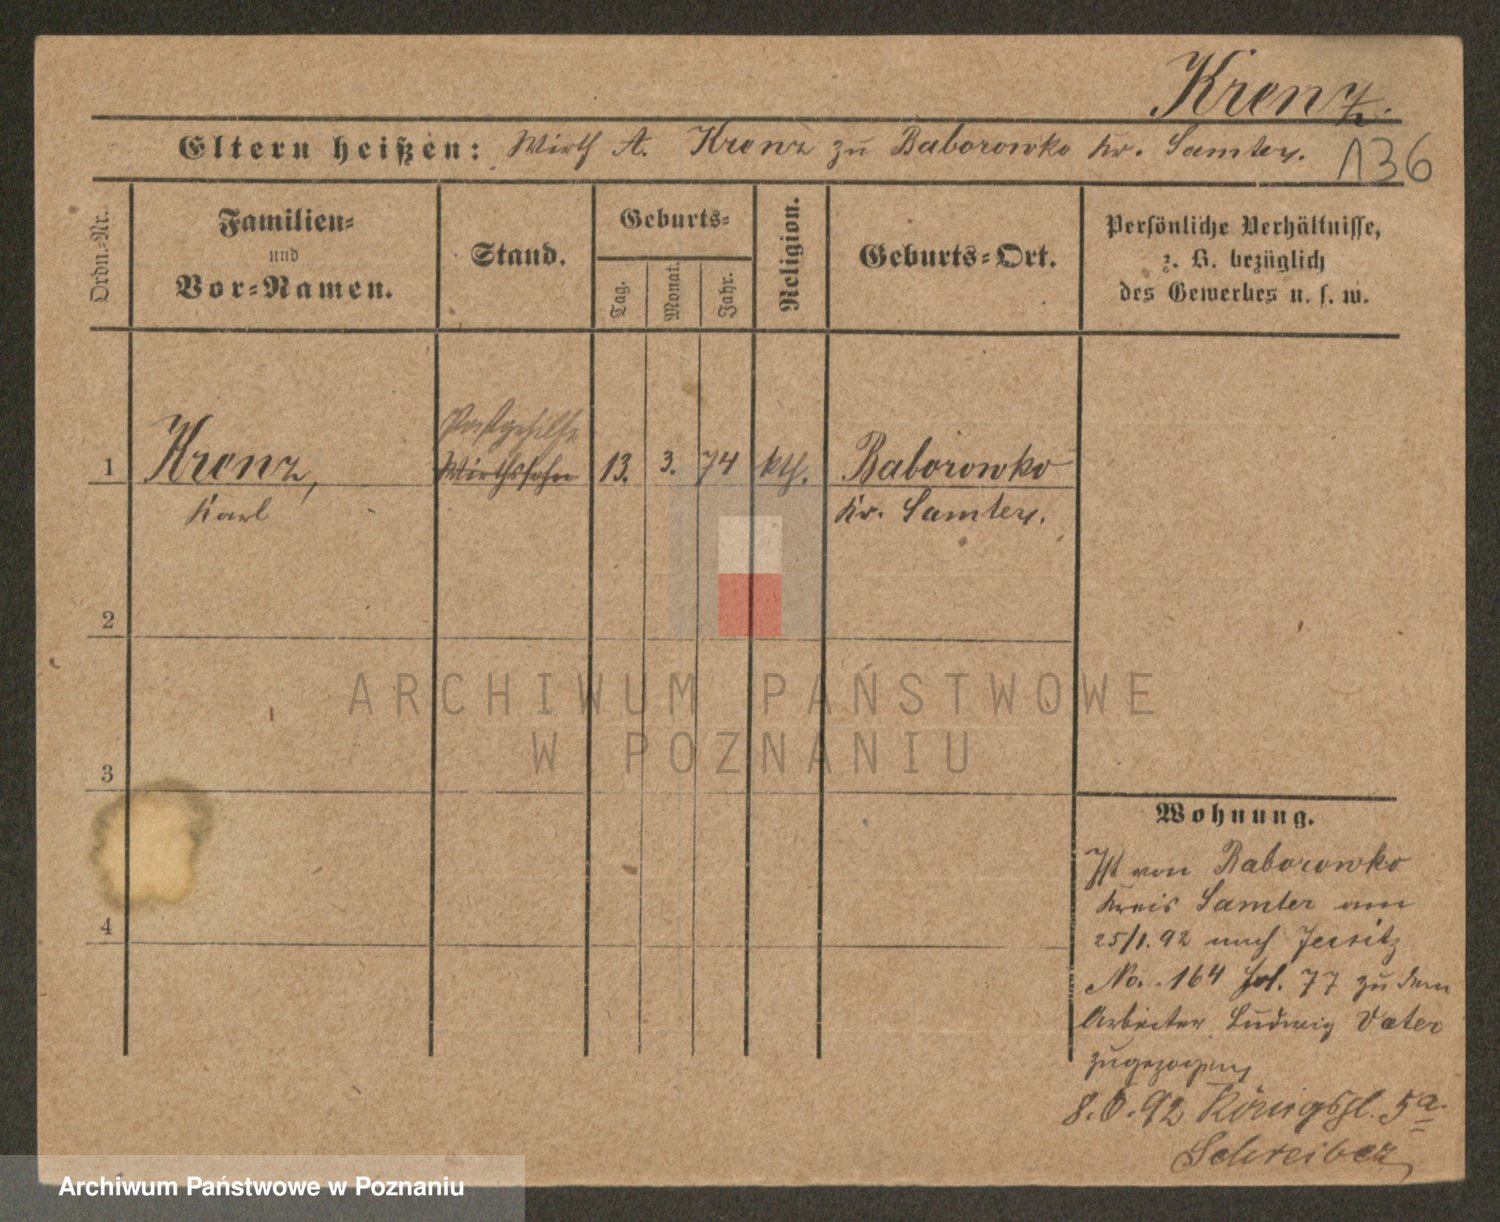 Krenz.
Eltern heißen: Wirth A. Krenz zu Baborowko Kr. Samter.
136
Ordn.-Nr.
Familien-
und
Vor-Namen.
Stand.
Geburts-
Tag.
Monat.
Jahr.
Religion.
Geburts-Ort.
Persönliche Verhältnisse,
z. B. bezüglich
des Gewerbes u. s. w.
Postgehilfe
1 Krenz, Wirthssohn 13. 3. 74 kth. Baborowko
Karl Kr. Samter.
2
ARCHIWUM PAŃSTWOWE
W POZNANIU
3
4
Wohnung.
Ist von Baborowko
Kreis Samter am
25/1.92 nach Jersitz
No. 164 fol. 77 zu dem
Arbeiter Ludwig Vater
zugezogen
8.6.92 Königspl. 5a
Schreiber
Archiwum Państwowe w Poznaniu